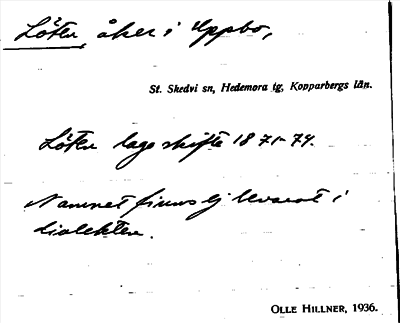 Löten, åker i Uppbo,
St. Skedvi sn, Hedemora tg, Kopparbergs län.
Löten laga skifte 1871-74.
Namnet finns ej kvar i
dialekten.
OLLE HILLNER, 1936.